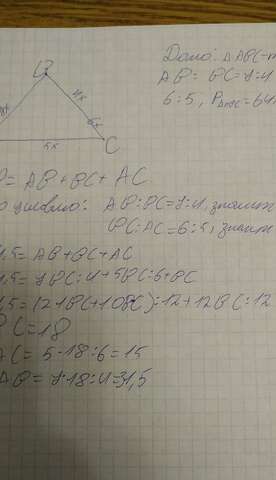 Дано: △ABC-
AB : BC = 7:4
6:5, P△ABC = 64,
B
4x
6x
C
5x
P = AB + BC + AC
AB:BC = 7:4, значит
BC:AC = 6:5, значит
4,5 = AB + BC + AC
4,5 = 7BC:4 + 5BC:6 + BC
,5 = (21BC + 10BC):12 + 12BC:12
BC = 18
AC = 5·18:6 = 15
AB = 7·18:4 = 31,5